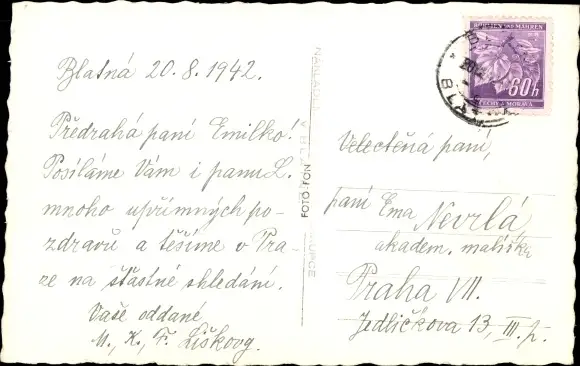 Blatná 20.8.1942.
Předrahá paní Emilko!
Posíláme Vám i panu L.
mnoho upřímných po-
zdravů a těšíme v Pra-
ze na šťastné shledání.
Vaše oddané
M., K., F. Liškovy.
FOTO FON
BÖHMEN UND MÄHREN
60h
ČECHY A MORAVA
Velectěná paní,
paní Ema Nevrlá
akadem. malířka
Praha VII.
Jedličkova 13, III. p.